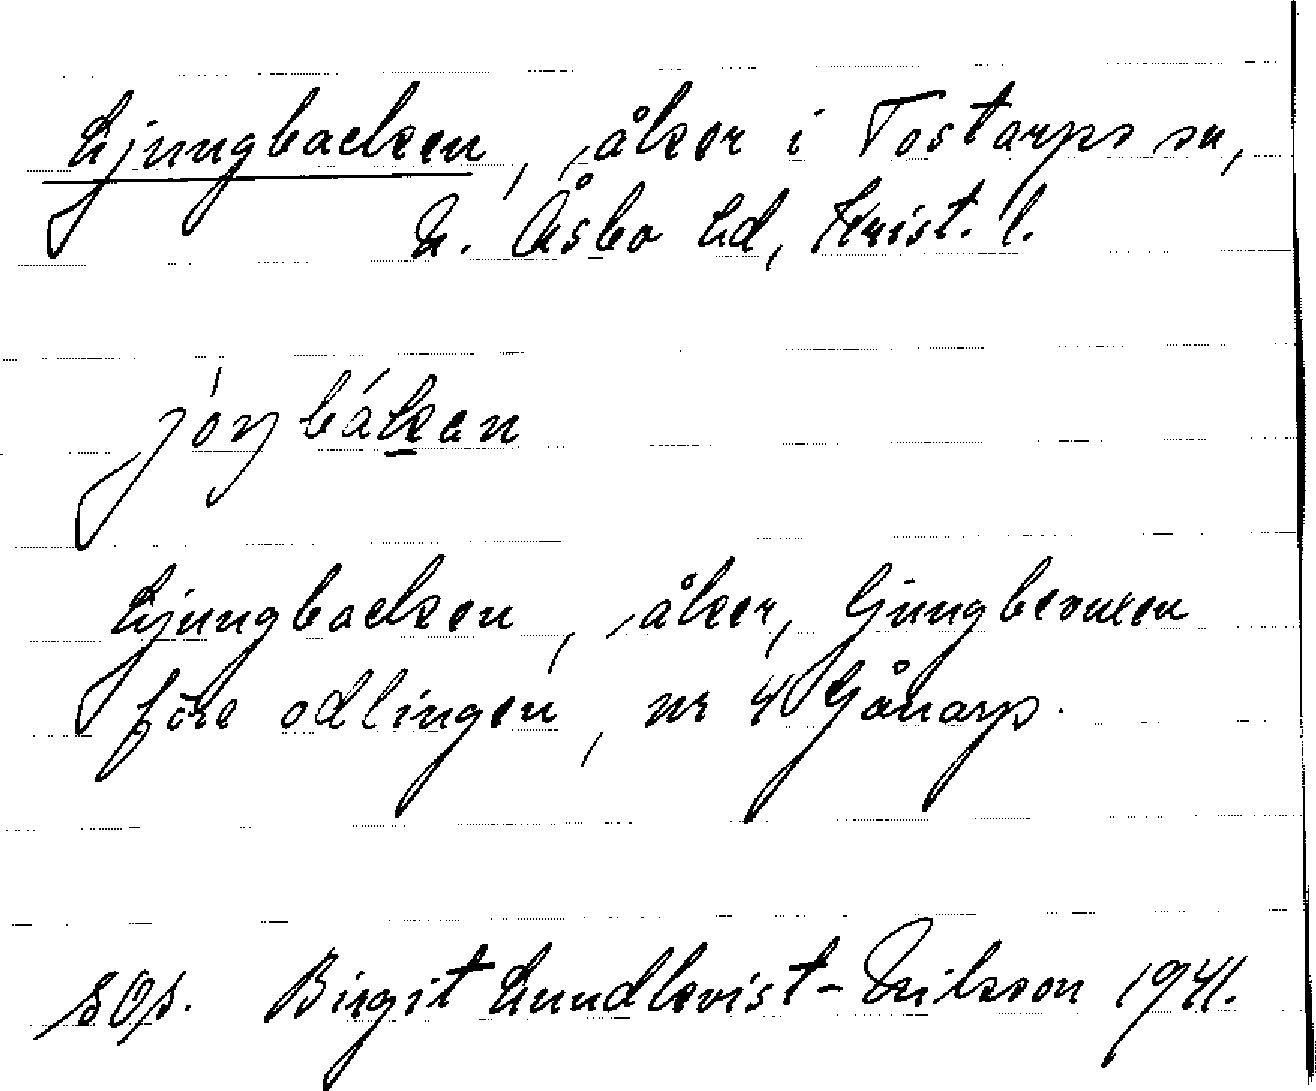 Ljungbacken, åker i Tostarps sn,
N. Åsbo hd, Krist. l.
jóŋbákan
Ljungbacken, åker, ljungbevuxen
före odlingen, nr 4 Gånarp.
SOp. Birgit Lundkvist-Nilsson 1941.